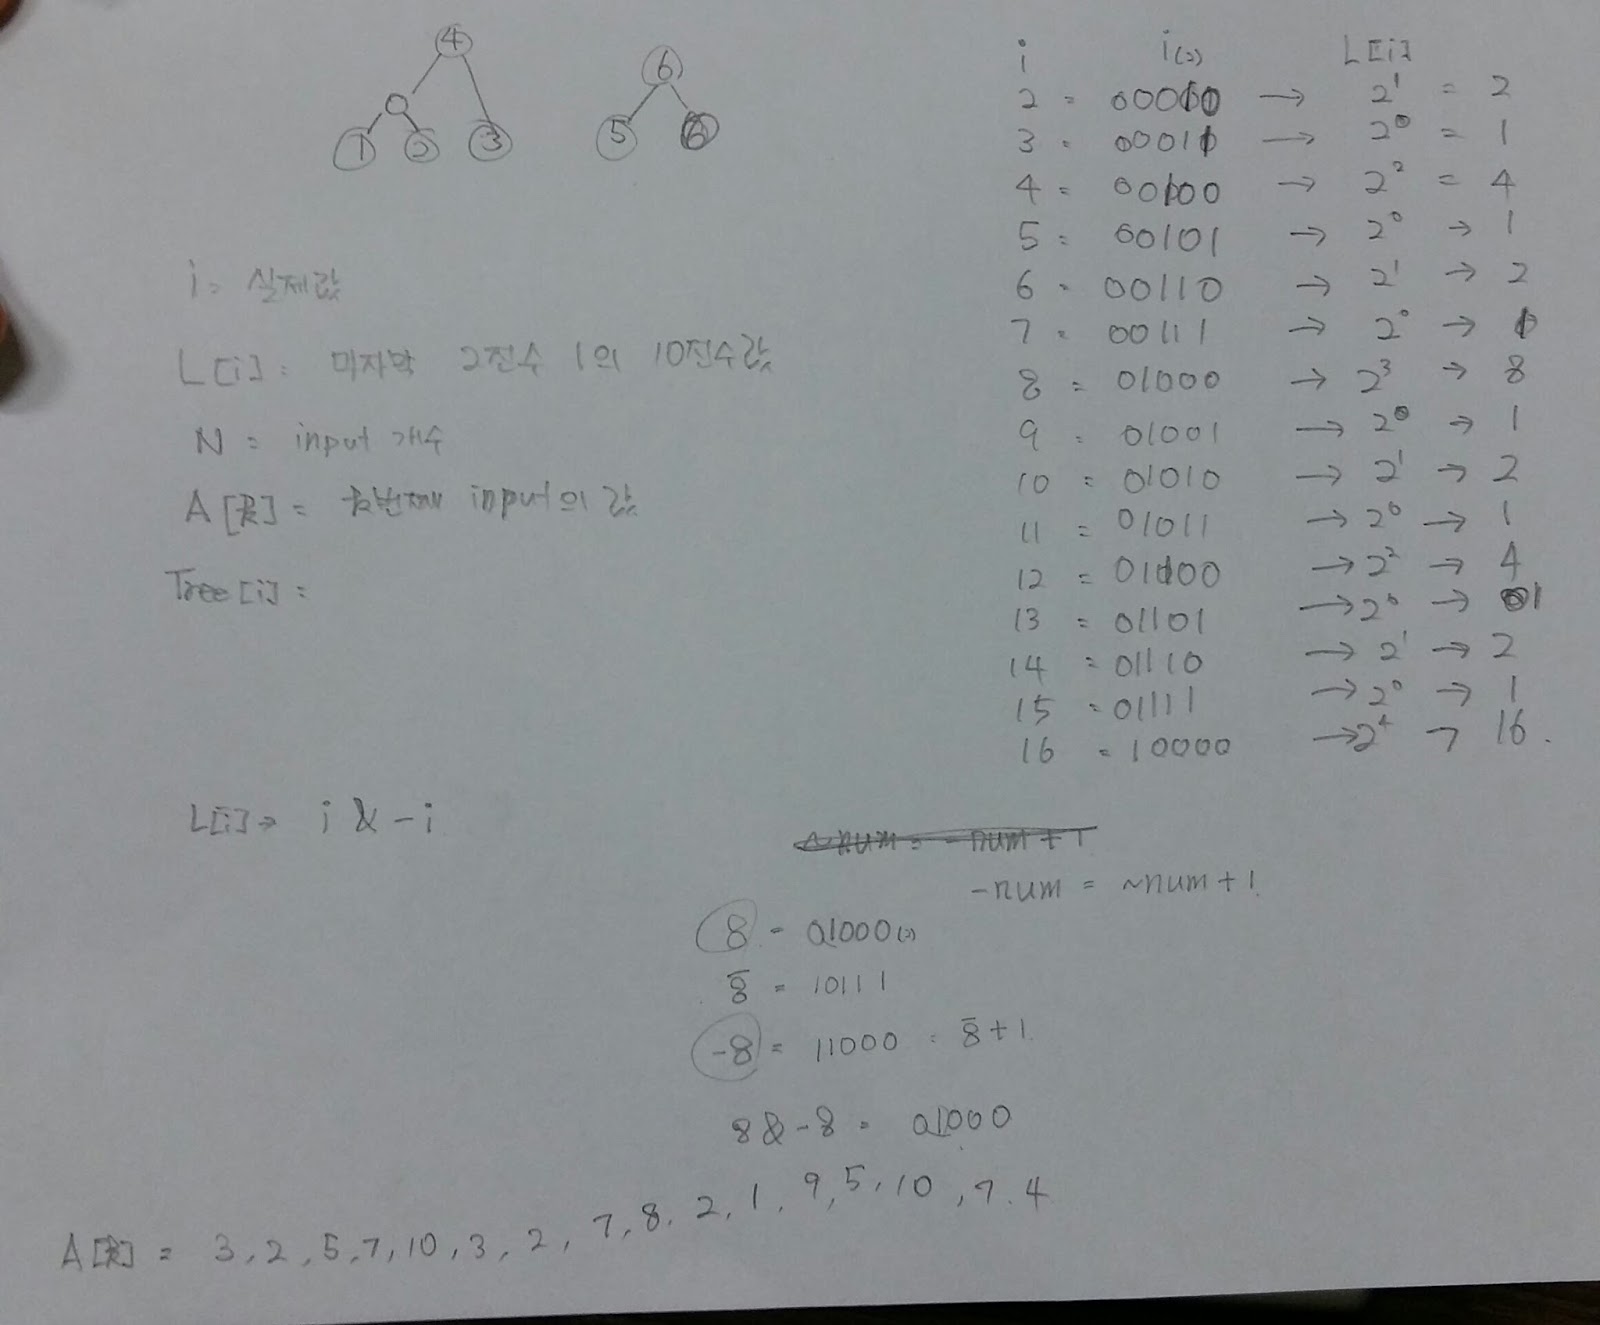 4
6
1 2 3
5 6
i = 실제값
L[i] : 마지막 2진수 1의 10진수값
N = input 개수
A[k] = k번째 input의 값
Tree[i] =
L[i] → i & -i
i i(2) L[i]
2 = 00010 → 2^1 = 2
3 = 00011 → 2^0 = 1
4 = 00100 → 2^2 = 4
5 = 00101 → 2^0 → 1
6 = 00110 → 2^1 → 2
7 = 00111 → 2^0 → 1
8 = 01000 → 2^3 → 8
9 = 01001 → 2^0 → 1
10 = 01010 → 2^1 → 2
11 = 01011 → 2^0 → 1
12 = 01100 → 2^2 → 4
13 = 01101 → 2^0 → 1
14 = 01110 → 2^1 → 2
15 = 01111 → 2^0 → 1
16 = 10000 → 2^4 → 16.
~num = -num + 1
-num = ~num + 1
8 = 01000(2)
8̄ = 10111
-8 = 11000 = 8̄ + 1
8 & -8 = 01000
A[k] = 3, 2, 5, 7, 10, 3, 2, 7, 8, 2, 1, 9, 5, 10, 7, 4